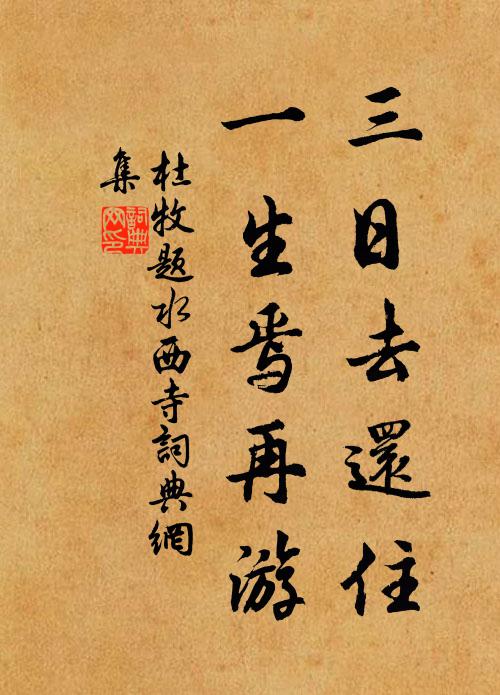 三日去還住
一生焉再游
杜牧題水西寺詞典網
集
詞典網印